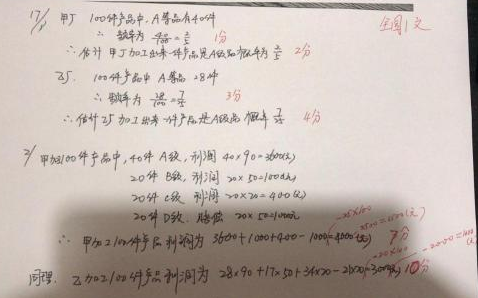 17/ 甲厂 100件产品中,A等品有40件 全国1文
∴ 频率为 40/100 = 2/5 1分
∴ 估计甲厂加工出来一件产品是A级品概率为 2/5 2分
乙厂. 100件产品中 A等品 28件
∴ 频率为 28/100 = 7/25 3分
∴ 估计乙厂加工出来一件产品是A级品概率 4分
2/ 甲加100件产品中, 40件 A级, 利润 40×90=3600(元)
20件 B级, 利润 20×50=1000元
20件 C级 利润 20×20=400(元)
20件 D级. 赔偿 20×50=1000元
∴ 甲加工100件产品利润为 3600+1000+400-1000 7分
同理. 乙加工100件产品利润为 28×90+17×50+34×20- 10分